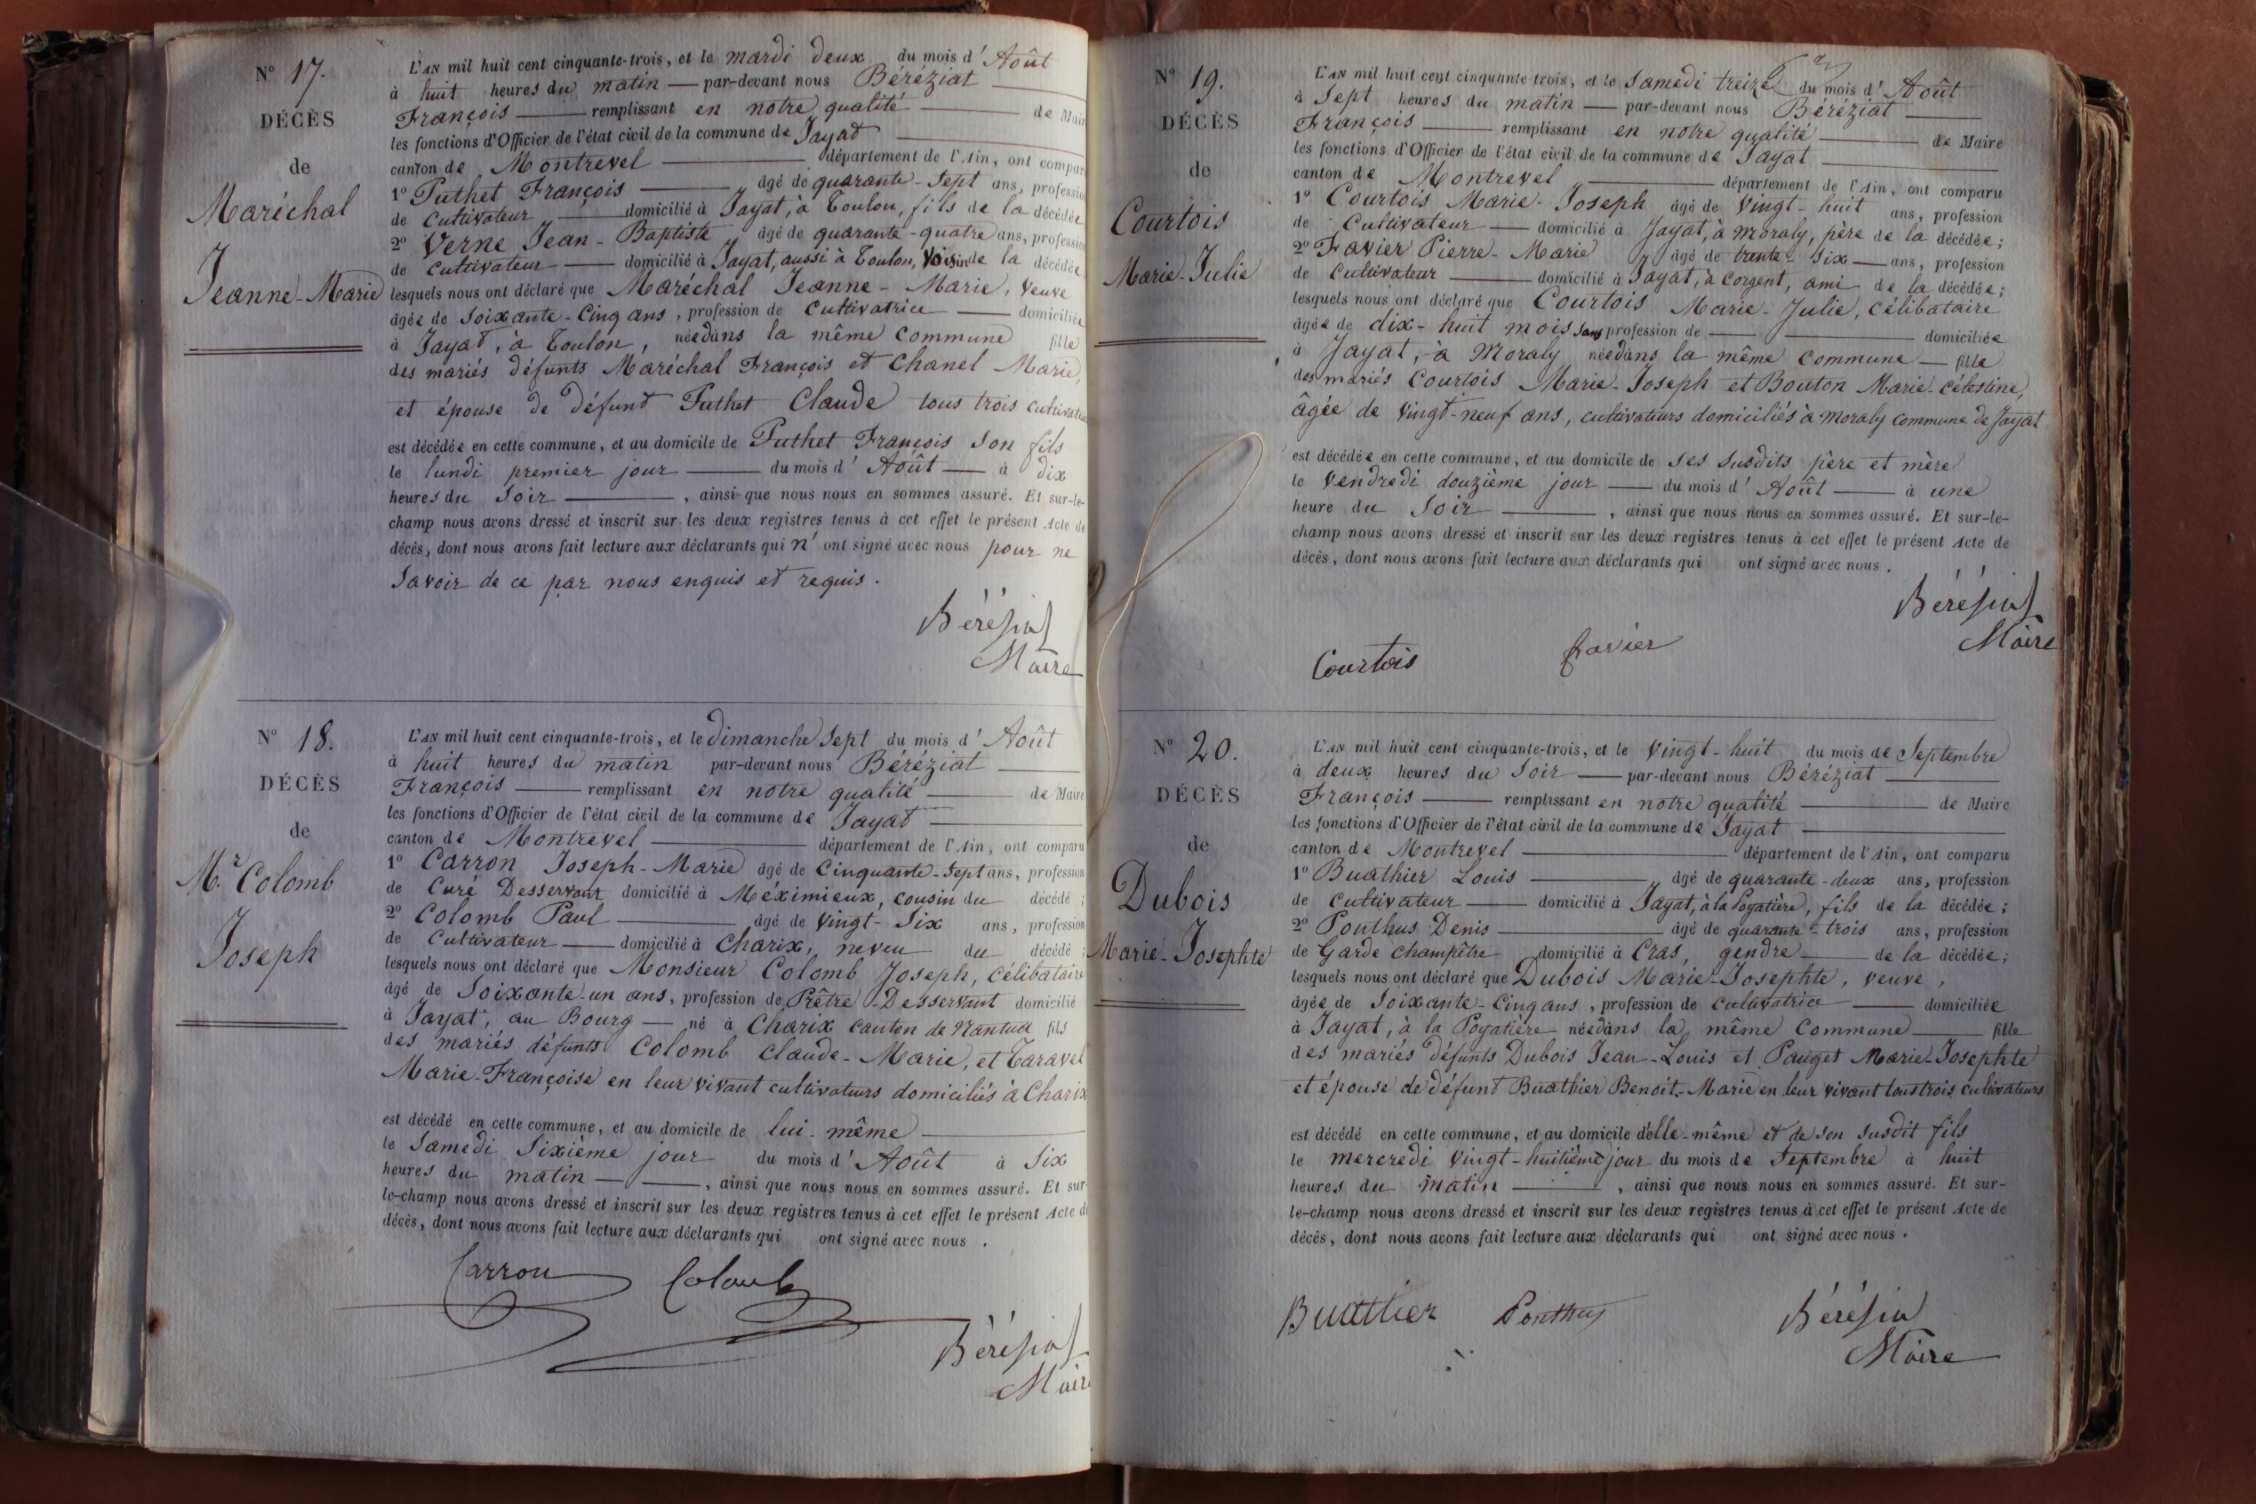 Nº 17.
DÉCÈS
de
Maréchal
Jeanne-Marie
L'AN mil huit cent cinquante-trois, et le mardi deux du mois d' Août
à huit heures du matin — par-devant nous Béréziat
François — remplissant en notre qualité — de Mair
les fonctions d'Officier de l'état civil de la commune de Jayat
canton de Montrevel — département de l'Ain, ont compar
1º Puthet François — âgé de quarante-sept ans, profession
de cultivateur — domicilié à Jayat, à Toulon, fils de la décédée
2º Verne Jean-Baptiste âgé de quarante-quatre ans, profession
de cultivateur — domicilié à Jayat, aussi à Toulon, voisin de la décédée
lesquels nous ont déclaré que Maréchal Jeanne-Marie, veuve
âgée de soixante-cinq ans, profession de cultivatrice — domiciliée
à Jayat, à Toulon, née dans la même commune fille
des mariés défunts Maréchal François et Chanel Marie,
et épouse de défunt Puthet Claude tous trois cultivateurs
est décédée en cette commune, et au domicile de Puthet François son fils
le lundi premier jour — du mois d' Août — à dix
heures du soir — , ainsi que nous nous en sommes assuré. Et sur-le-
champ nous avons dressé et inscrit sur les deux registres tenus à cet effet le présent Acte de
décès, dont nous avons fait lecture aux déclarants qui n' ont signé avec nous pour ne
savoir de ce par nous enquis et requis.
Béréziat
Maire
Nº 18.
DÉCÈS
de
Mr. Colomb
Joseph
L'AN mil huit cent cinquante-trois, et le dimanche sept du mois d' Août
à huit heures du matin par-devant nous Béréziat
François — remplissant en notre qualité — de Maire
les fonctions d'Officier de l'état civil de la commune de Jayat
canton de Montrevel — département de l'Ain, ont comparu
1º Carron Joseph-Marie âgé de cinquante-sept ans, profession
de Curé Desservant domicilié à Méximieux, cousin du décédé ;
2º Colomb Paul — âgé de vingt-six ans, profession
de cultivateur — domicilié à Charix, neveu du décédé ;
lesquels nous ont déclaré que Monsieur Colomb Joseph, célibataire
âgé de soixante-un ans, profession de Prêtre-Desservant domicilié
à Jayat, au Bourg — né à Charix canton de Nantua fils
des mariés défunts Colomb Claude-Marie, et Taravel
Marie-Françoise en leur vivant cultivateurs domiciliés à Charix
est décédé en cette commune, et au domicile de lui-même
le samedi sixième jour du mois d' Août à six
heures du matin — , ainsi que nous nous en sommes assuré. Et sur-
le-champ nous avons dressé et inscrit sur les deux registres tenus à cet effet le présent Acte de
décès, dont nous avons fait lecture aux déclarants qui ont signé avec nous .
Carron Colomb
Béréziat
Maire
Nº 19.
DÉCÈS
de
Courtois
Marie-Julie
L'AN mil huit cent cinquante-trois, et le samedi treize du mois d' Août
à sept heures du matin — par-devant nous Béréziat
François — remplissant en notre qualité — de Maire
les fonctions d'Officier de l'état civil de la commune de Jayat
canton de Montrevel — département de l'Ain, ont comparu
1º Courtois Marie-Joseph âgé de vingt-huit ans, profession
de cultivateur — domicilié à Jayat, à Moraly, père de la décédée ;
2º Favier Pierre-Marie âgé de trente-six — ans, profession
de cultivateur — domicilié à Jayat, à Corgent, ami de la décédée ;
lesquels nous ont déclaré que Courtois Marie-Julie, célibataire
âgée de dix-huit mois sans profession de — domiciliée
à Jayat, à Moraly née dans la même commune — fille
des mariés Courtois Marie-Joseph et Bouton Marie-Célestine,
âgée de vingt-neuf ans, cultivateurs domiciliés à Moraly commune de Jayat
est décédée en cette commune, et au domicile de ses susdits père et mère
le vendredi douzième jour — du mois d' Août — à une
heure du soir — , ainsi que nous nous en sommes assuré. Et sur-le-
champ nous avons dressé et inscrit sur les deux registres tenus à cet effet le présent Acte de
décès, dont nous avons fait lecture aux déclarants qui ont signé avec nous .
Béréziat
Maire
Courtois Favier
Nº 20.
DÉCÈS
de
Dubois
Marie-Josephte
L'AN mil huit cent cinquante-trois, et le vingt-huit du mois de Septembre
à deux heures du soir — par-devant nous Béréziat
François — remplissant en notre qualité — de Maire
les fonctions d'Officier de l'état civil de la commune de Jayat
canton de Montrevel — département de l'Ain, ont comparu
1º Buathier Louis — âgé de quarante-deux ans, profession
de cultivateur — domicilié à Jayat, à la Poyatière, fils de la décédée ;
2º Ponthus Denis — âgé de quarante-trois ans, profession
de Garde champêtre domicilié à Cras, gendre — de la décédée ;
lesquels nous ont déclaré que Dubois Marie-Josephte, veuve,
âgée de soixante-cinq ans, profession de cultivatrice — domiciliée
à Jayat, à la Poyatière née dans la même commune — fille
des mariés défunts Dubois Jean-Louis et Pauget Marie-Josephte
et épouse de défunt Buathier Benoit-Marie en leur vivant tous trois cultivateurs
est décédé en cette commune, et au domicile d'elle-même et de son susdit fils
le mercredi vingt-huitième jour du mois de Septembre à huit
heures du matin — , ainsi que nous nous en sommes assuré. Et sur-
le-champ nous avons dressé et inscrit sur les deux registres tenus à cet effet le présent Acte de
décès, dont nous avons fait lecture aux déclarants qui ont signé avec nous .
Buathier Ponthus Béréziat
Maire